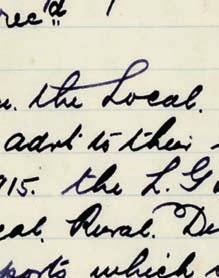 rec'd
the Local.
advt to their
1915. the L.G
Rural. D
which